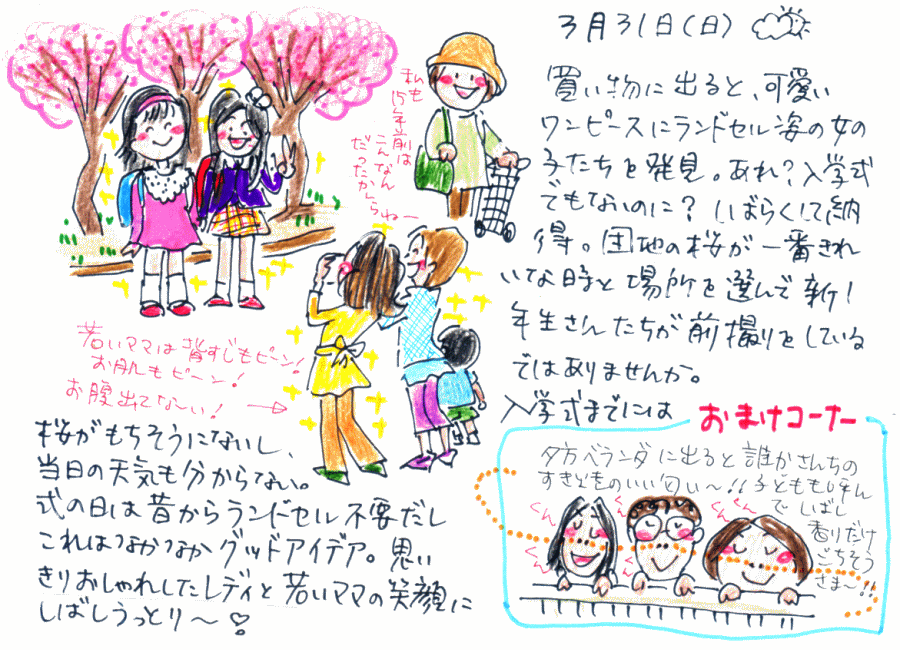 3月31日(日)
買い物に出ると、可愛い
ワンピースにランドセル姿の女の
子たちを発見。あれ？入学式
でもないのに？しばらくして納
得。団地の桜が一番きれ
いな時と場所を選んで新1
年生さんたちが前撮りをしている
ではありませんか。
入学式までには
桜がもちそうにないし、
当日の天気も分からない。
式の日は昔からランドセル不要だし
これはなかなかグッドアイデア。思い
きりおしゃれしたレディと若いママの笑顔に
しばしうっとり〜
私も
15年前は
こんなん
だったかしらねー
若いママは背すじもピーン！
お肌もピーン！
お腹出てな〜い！
おまけコーナー
夕方ベランダに出ると誰かさんちの
すきどきのいい匂い〜!!子どもも呼ん
でしばし
香りだけ
ごちそう
さま〜!!
くんくん
くんくん
くんくん